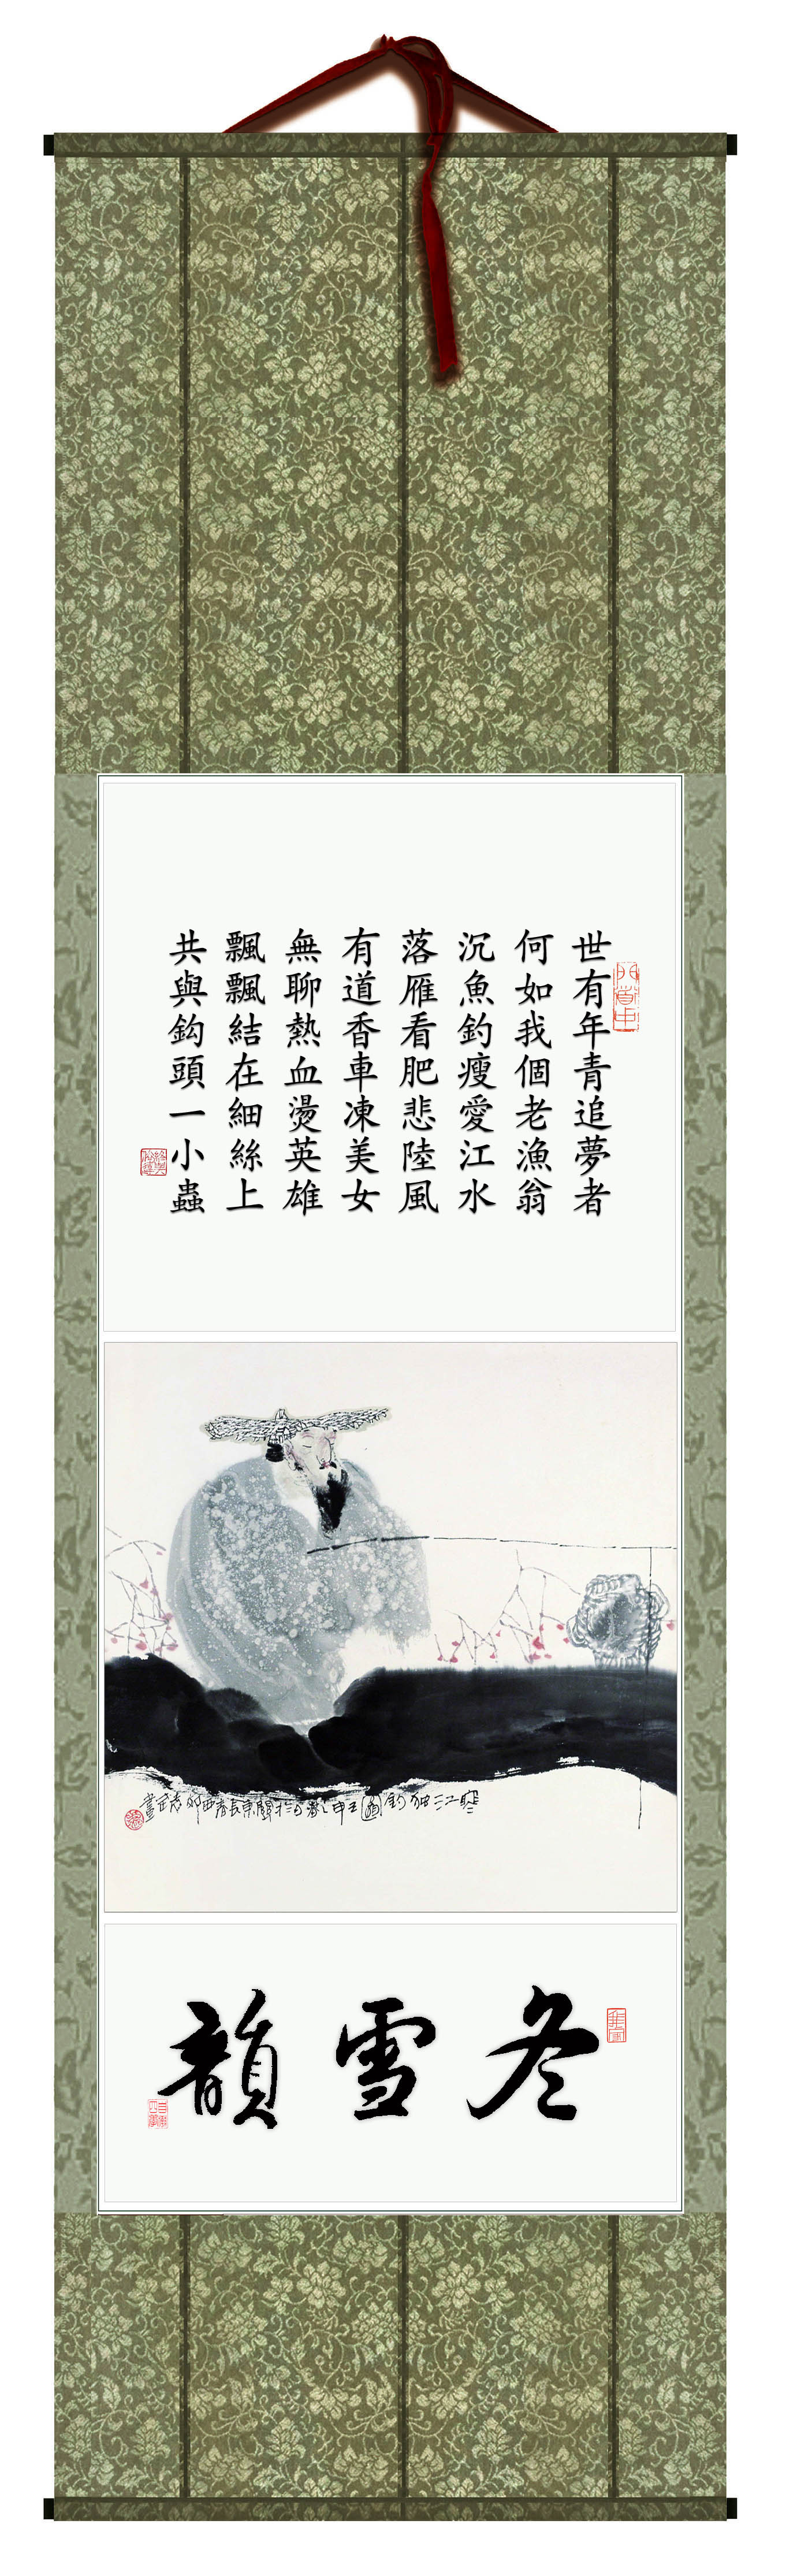 世有年青追夢者
何如我個老漁翁
沉魚釣瘦愛江水
落雁看肥悲陸風
有道香車凍美女
無聊熱血燙英雄
飄飄結在細絲上
共與鈎頭一小蟲
寒江独釣圖壬申
冬雪韻